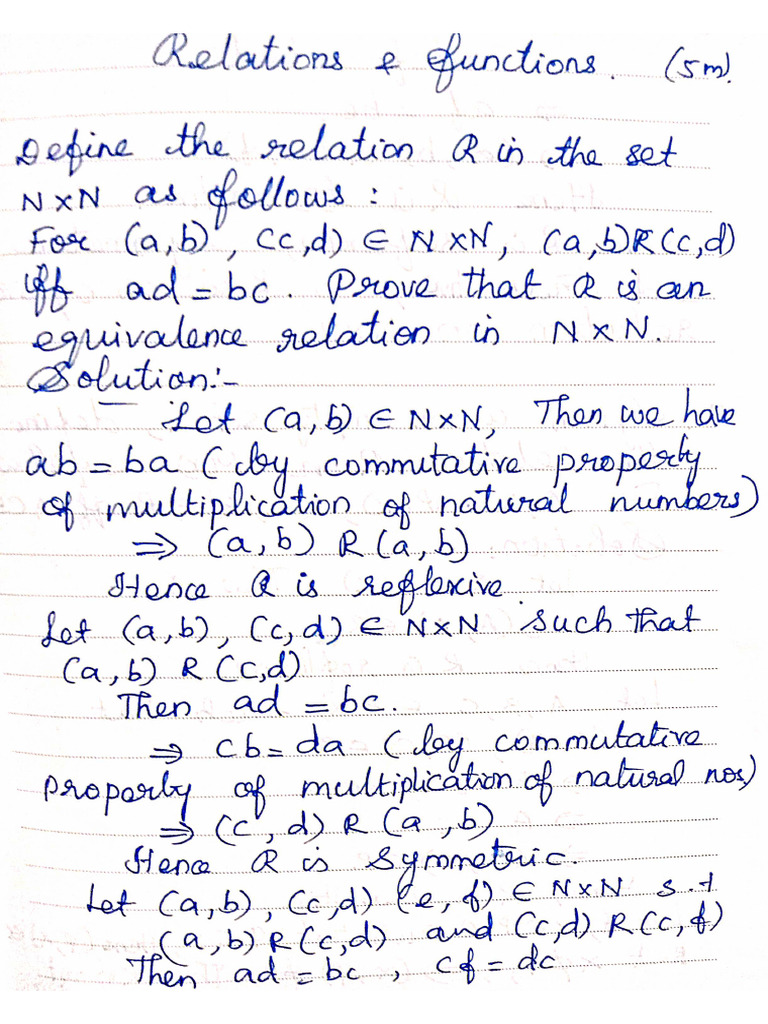 Relations & functions. (5m).
Define the relation R in the set
N×N as follows :
For (a,b), (c,d) ∈ N×N, (a,b)R(c,d)
iff ad = bc. Prove that R is an
equivalence relation in N×N.
Solution:-
Let (a,b) ∈ N×N, Then we have
ab = ba (by commutative property
of multiplication of natural numbers)
⇒ (a,b) R (a,b)
Hence R is reflexive
Let (a,b), (c,d) ∈ N×N such that
(a,b) R (c,d)
Then ad = bc.
⇒ cb = da (by commutative
property of multiplication of natural nos)
⇒ (c,d) R (a,b)
Hence R is symmetric.
Let (a,b), (c,d) (e,f) ∈ N×N s.t
(a,b) R (c,d) and (c,d) R (c,f)
Then ad = bc, cf = dc